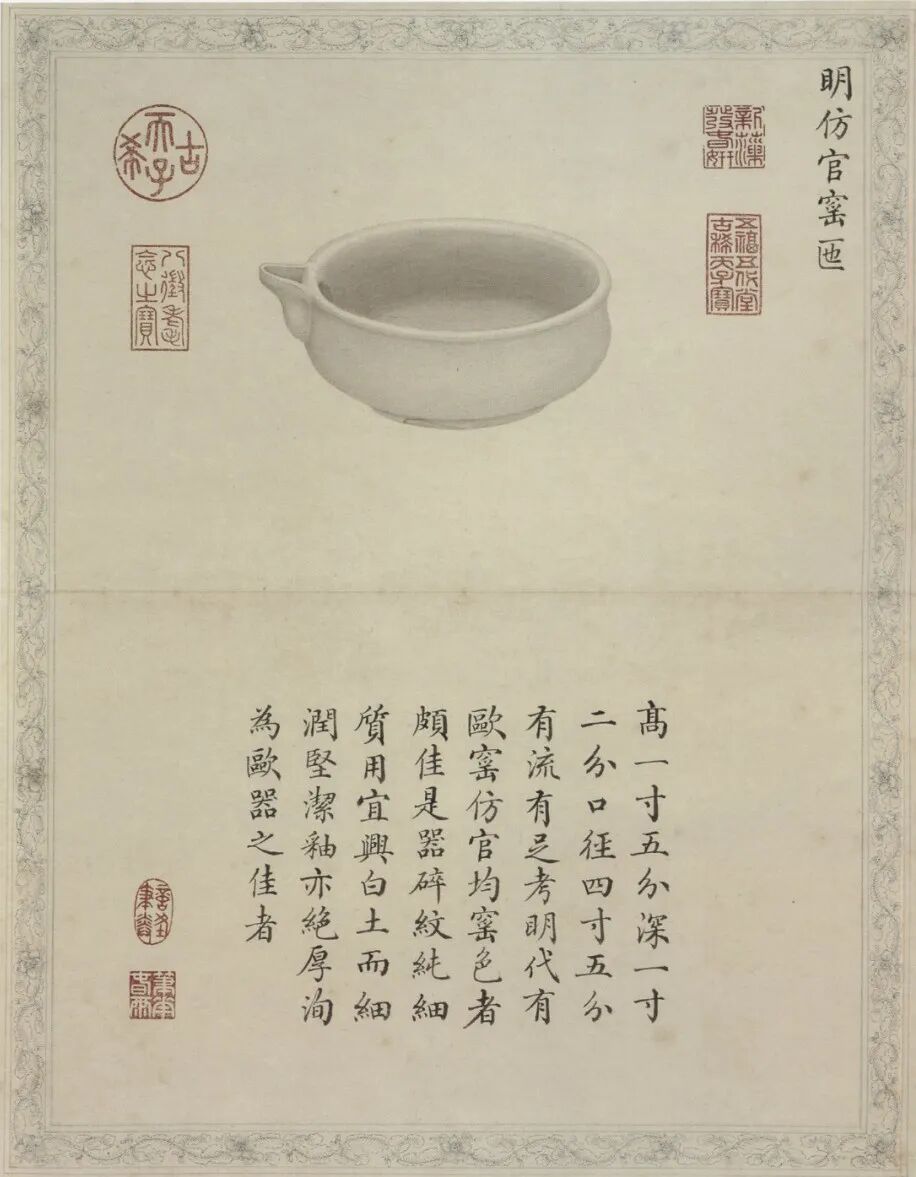 明仿官窯匜
五福五代堂
古稀天子寶
古希天子
八徵耄
念之寶
髙一寸五分深一寸
二分口徑四寸五分
有流有足考明代有
歐窯仿官均窯色者
頗佳是器碎紋純細
質用宜興白土而細
潤堅潔釉亦絕厚洵
為歐器之佳者